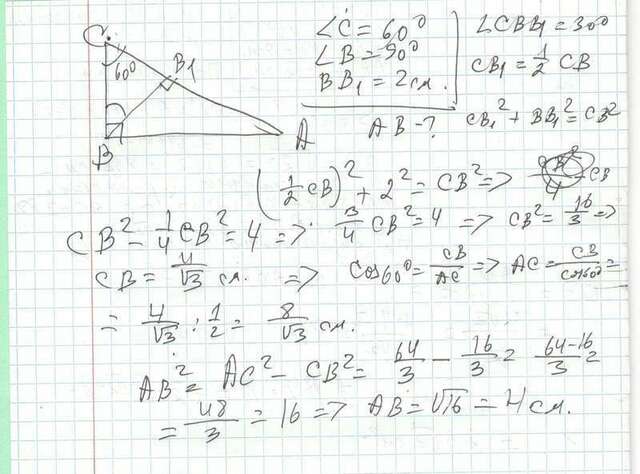 C
60°
B₁
B
A
∠C = 60°
∠B = 90°
BB₁ = 2 см.
AB - ?
∠CBB₁ = 30°
CB₁ = 1/2 CB
CB₁² + BB₁² = CB²
(1/2 CB)² + 2² = CB² =>
CB² - 1/4 CB² = 4 => 3/4 CB² = 4 => CB² = 16/3 =>
CB = 4/√3 см. => cos60° = CB/AC => AC = CB/cos60° =
= 4/√3 : 1/2 = 8/√3 см.
AB² = AC² - CB² = 64/3 - 16/3 = 64-16/3 =
= 48/3 = 16 => AB = √16 = 4 см.